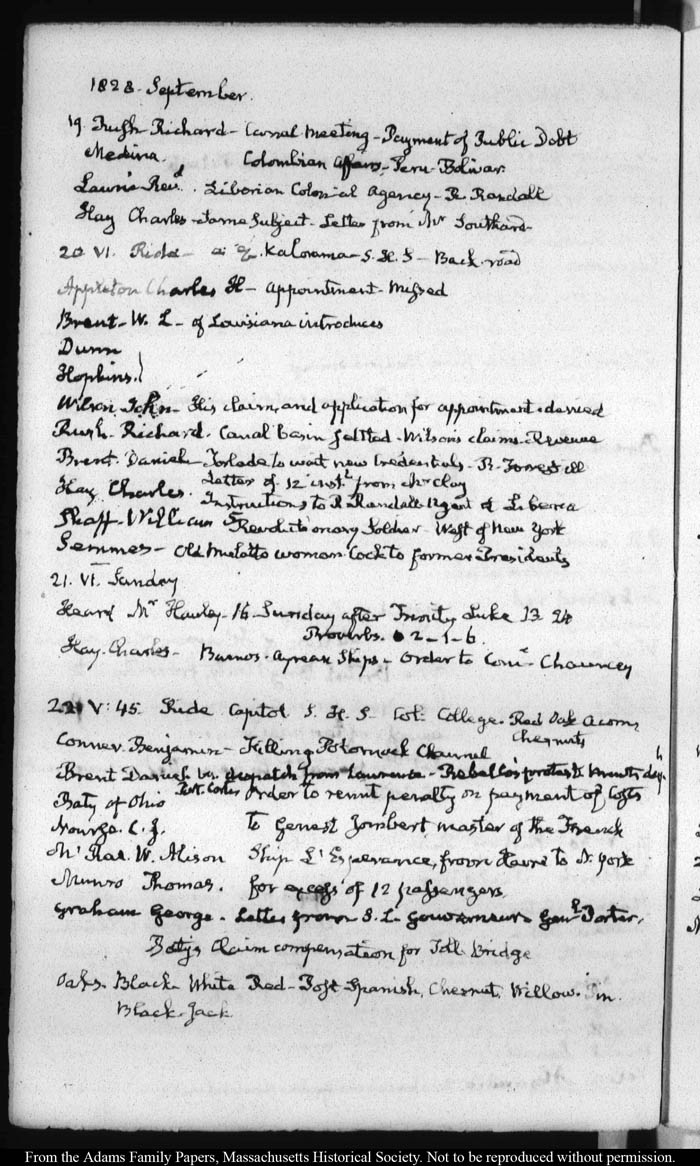 1828. September.
19. Rush Richard- Canal meeting- Payment of Public Debt
Medina. Colombian affairs- Peru- Bolivar.
Laurie Revd. Liberian Colonial Agency- R. Randall
Hay Charles- Same Subject- Letter from Mr Southard-
20 VI. Ride- Kalorama- S. H. S- Back-road
Appleton Charles H- appointment- Missed
Brent- W. L- of Louisiana introduces
Dunn
Hopkins.
Wilson John- His claim, and application for appointment- denied
Rush- Richard. Canal basin settled- Wilson's claims- Revenue
Brent- Daniel- to wait new Credentials- R. Forrest ill
Letter of 12 inst. from Mr Clay
Hay Charles. Instructions to R. Randall Agent at Liberia
William Revolutionary Soldier- West of New York
Semmes- Old Mulatto woman Cook to former Presidents
21. VI. Sunday
Heard Mr Hawley- 16. Sunday after Trinity Luke 13 24
Proverbs. 2-1-6.
Hay. Charles- Buenos-ayrean Ships- Order to Comr Chauncey
22 V: 45. Ride Capitol S. H. S Col: College. Red Oak Acorn,
Chesnuts
Conner Benjamin- Filling Potomack Channel
Brent Daniel. despatch from Lawrence- Rebello's protest
Baty of Ohio Order to remit penalty on payment of Costs
Nourse. C. J. To Genest Jombert, master of the French
Mc Rae. W. Alison Ship L'Esperance, from Havre to N. York
Munro Thomas. for excess of 12 passengers.
Graham George. Letter from S. L. Gouverneur- Genl Porter.
Baty's Claim compensation for Toll Bridge
Oaks. Black- White Red- Post Spanish, Chesnut, Willow. Pin.
Black-Jack
From the Adams Family Papers, Massachusetts Historical Society. Not to be reproduced without permission.